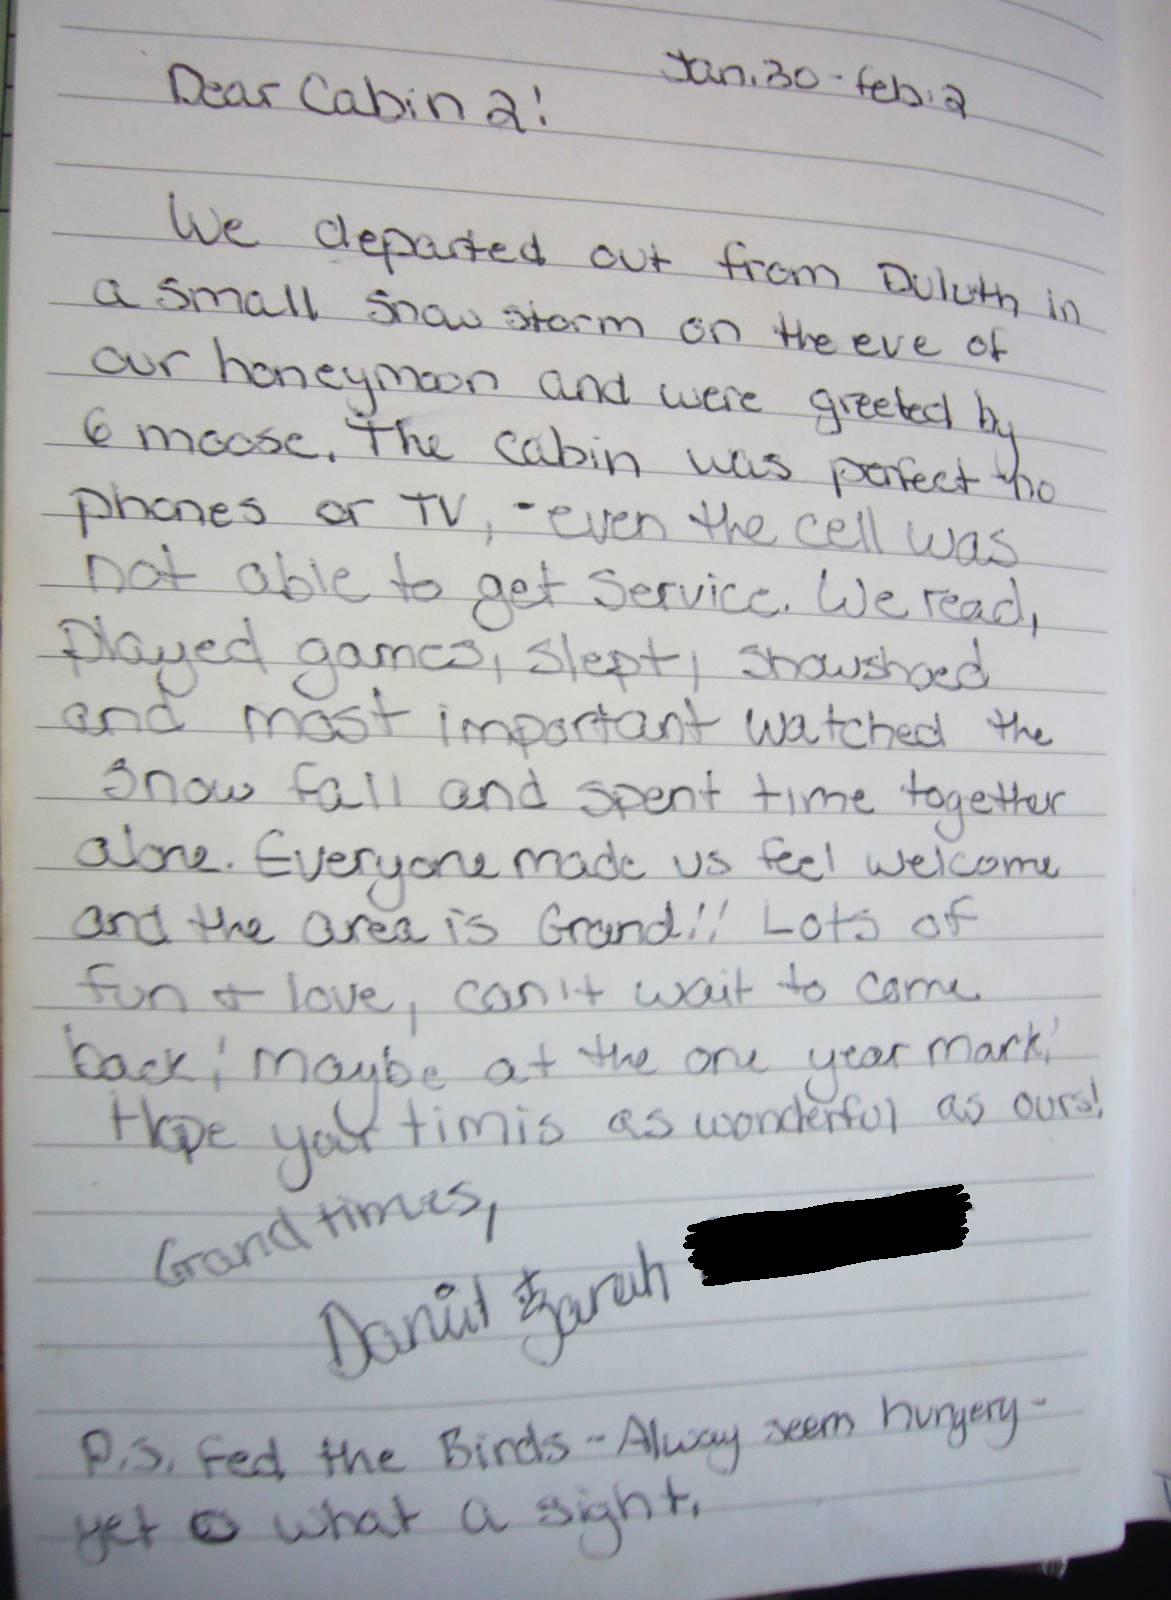 Jan. 30 - Feb. 2
Dear Cabin 2!
We departed out from Duluth in
a small snow storm on the eve of
our honeymoon and were greeted by
6 moose. The cabin was perfect no
phones or TV, - even the cell was
not able to get service. We read,
played games, slept, snowshoed
and most important watched the
snow fall and spent time together
alone. Everyone made us feel welcome
and the area is Grand!! Lots of
fun + love, can't wait to come
back! Maybe at the one year mark!
Hope your tim is as wonderful as ours!
Grand times,
Daniel & Sarah
P.S. Fed the Birds - Alway seem hungery -
yet what a sight.